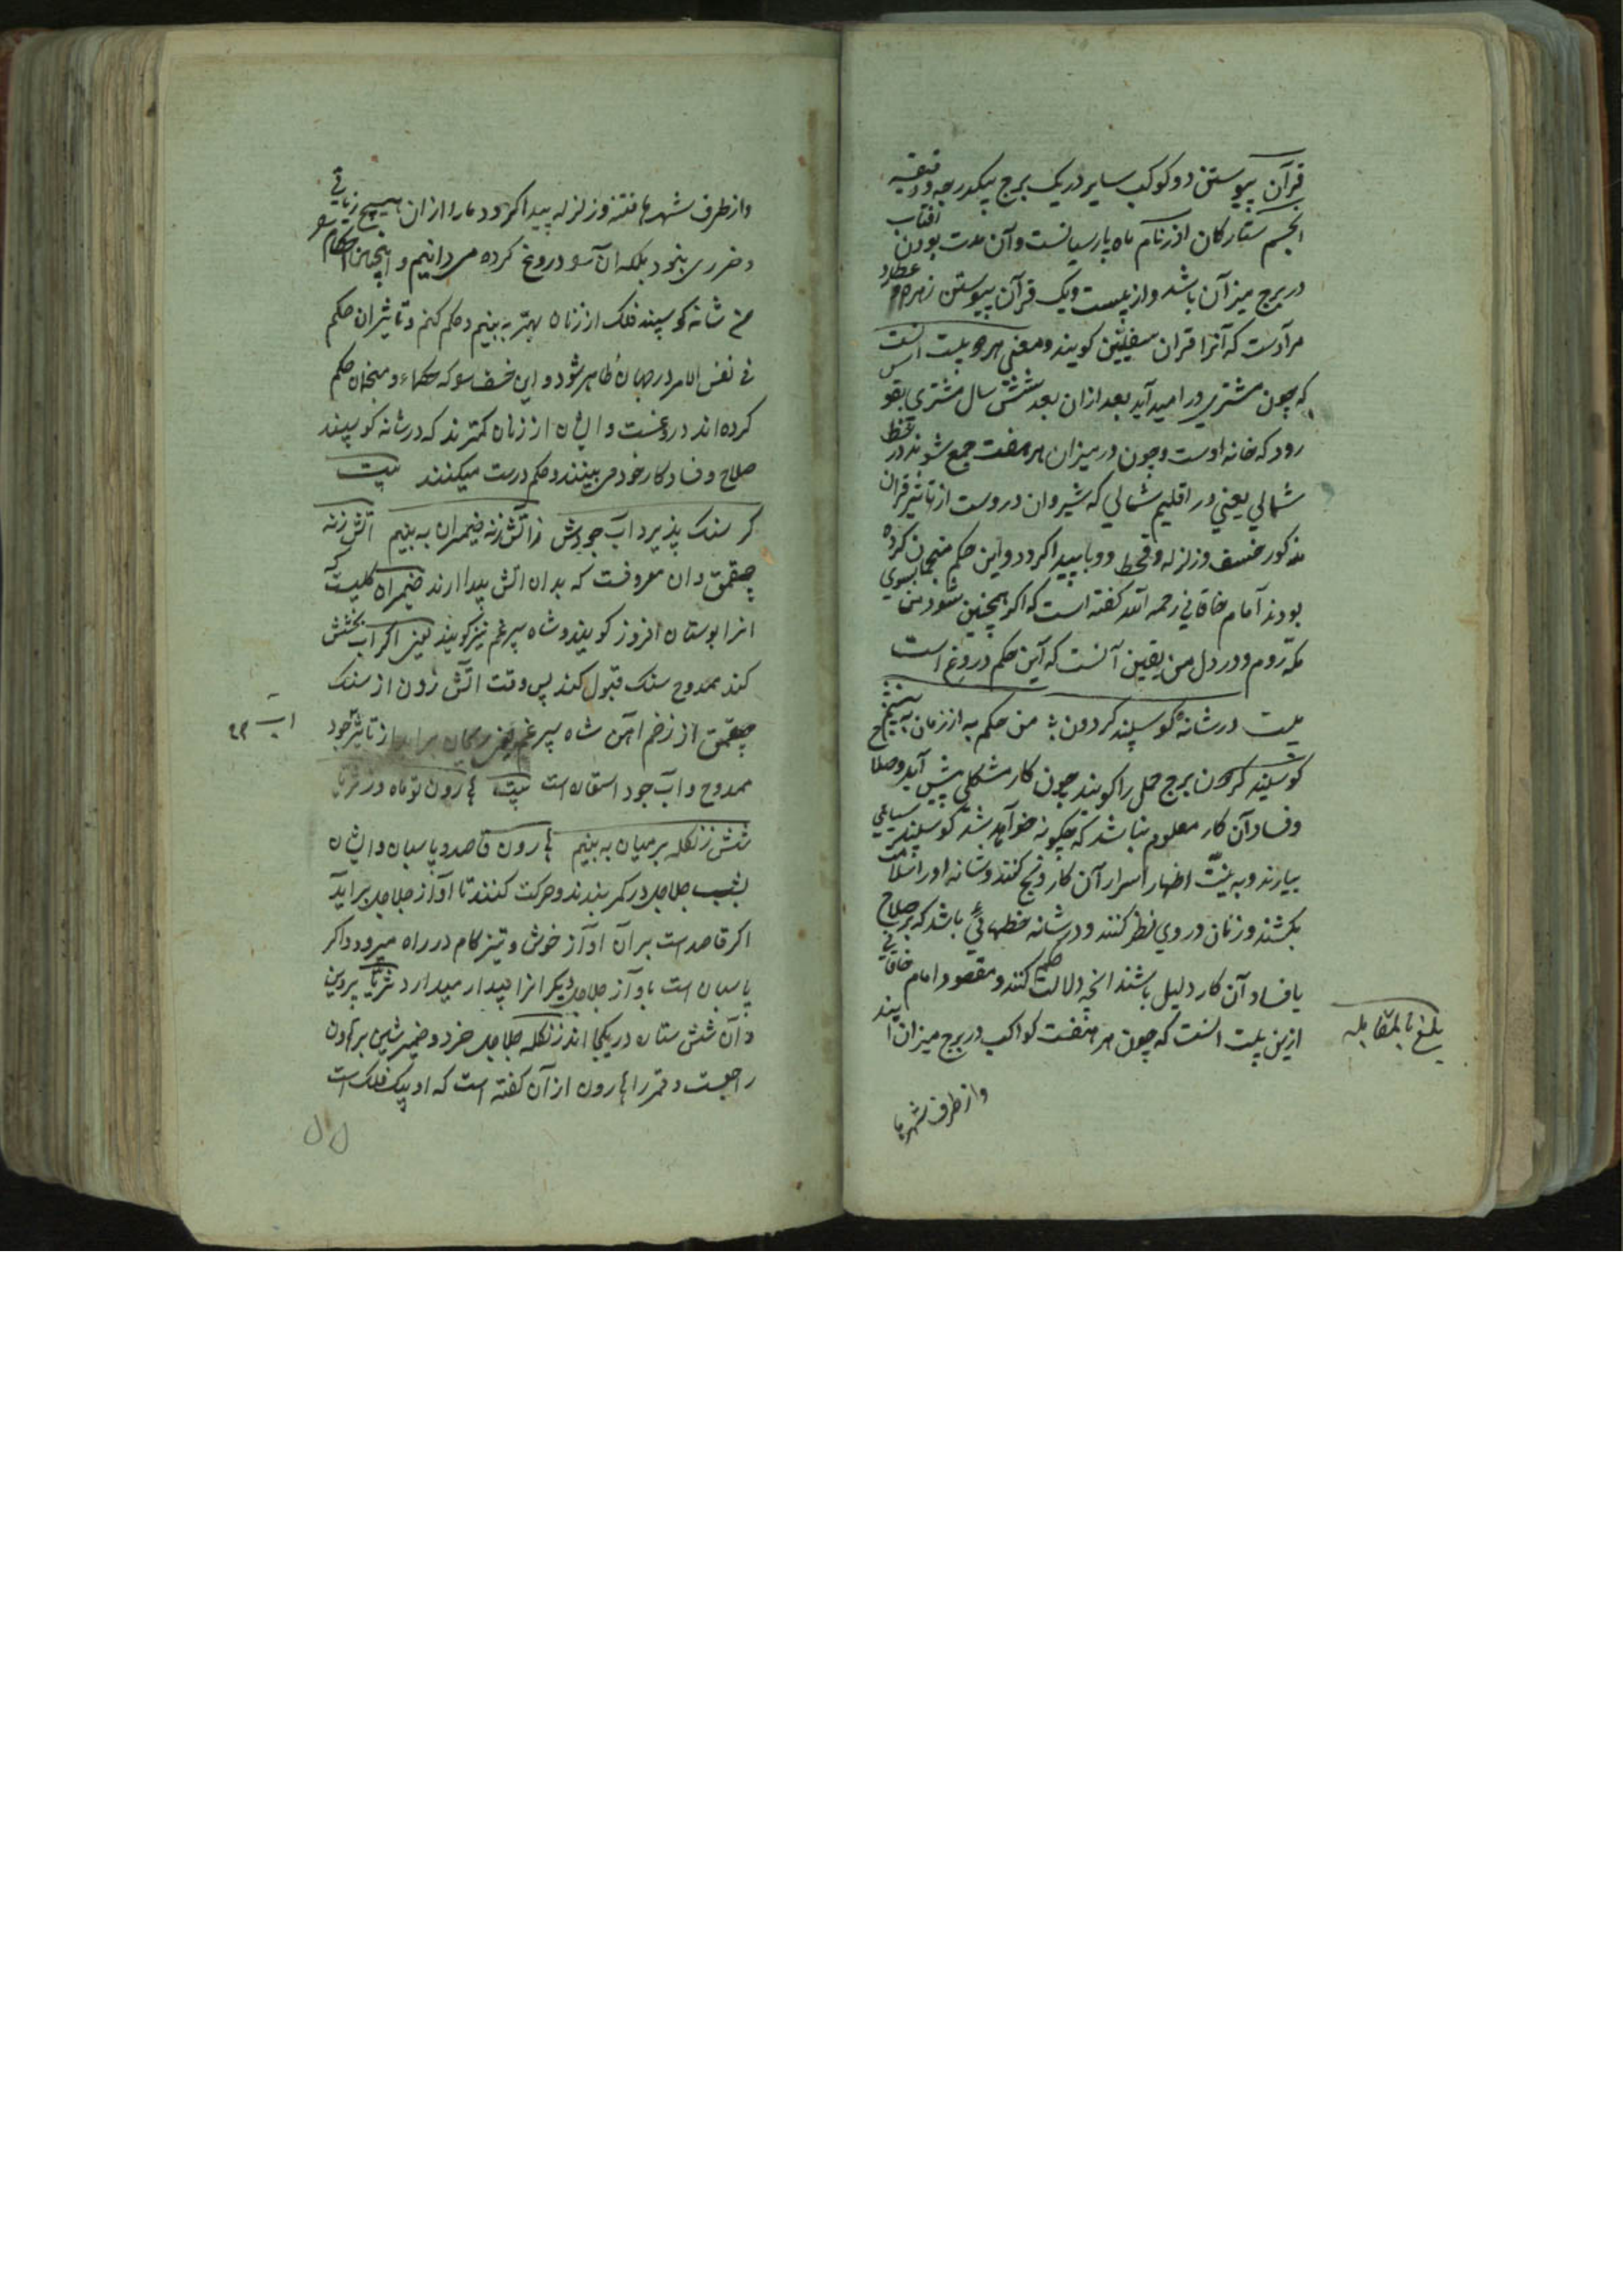 قرآن پیوستن دو کوکب سایر در یک برج بیکدرجه و دقیقه
انجم ستارکان اذر نام ماه پارسیانست وآن مدت بودن افتاب
در برج میزآن باشد واز بیست ویک قرآن پیوستن زهره و عطارد
مرآدست که آنرا قران سفلیین کویند ومعنی هر دو بیت انست
که چون مشتری در امید آید بعد ازان بعد شش سال مشتری بقو
رود که خانه اوست وچون در میزان هر هفت جمع شوند در خط
شمالي یعني در اقلیم شمالي که شیروان دروست از تاثیر قران
مذکور خسف وزلزله وقحط ووبا پیدا کردد واین حکم منجمان کرده
بودند آمام خاقاني رحمه الله کفته است که اکر همچنین شود من بسوي
مکه روم ودر دل من یقین آنست که آین حکم دروغ است
بیت در شانهٔ کوسپند کردون من حکم به از زمان به بینم
کوسپند کردون برج حمل را کویند چون کار مشکلي پیش آید وصلاح
وفساد آن کار معلوم نباشد که چکونه خوآهد شد کوسپند سیاهي
بیارند وبه نیّت اظهار اسرار آن کار ذبح کنند وشانه اورا سلامت
بکشند وزنان در وي نظر کنند ودر شانه خطهائي باشد که بر صلاح
یا فساد آن کار دلیل باشند انچه دلالت کنند حکم ومقصود امام خاقاني
ازین بیت انست که چون هر هفت کواکب در برج میزان ایند
بلغ بالمقابله
واز طرف شهرها
واز طرف شهرها فتنه وزلزله پیدا کردد مارا ازان هیچ زیاني
وضرری نبود بلکه ان آسو دروغ کرده می دانیم و اینچنین احکام سو
من شانه کوسپند فلک از زنان بهتر به بینم وحکم کنم وتاثیر ان حکم
في نفس الامر در جهان ظاهر شود واین خسف سو که حکماء ومنجمان حکم
کرده اند دروغست وایشان از زنان کمترند که در شانه کوسپند
صلاح وفساد کار خود می بینند وحکم درست میکنند بیت
کر سنک پذیرد اب جودش ز اتش زنه ضیمران به بینم اتش زنه
چقمق دان معروفست که بدان اتش پیدا ارند ضیمران کلیست که
انرا بوستان افروز کویند وشاه سپرغم نیز کویند یعنی اکر اب بخشش
کند ممدوح سنک قبول کند پس وقت آتش زدن از سنک
چقمق از زخم آهن شاه سپرغم یعنی ریحان براید از تاثیر جود
ممدوح وآب جود استعاره است بیت هارون تو ماه وز ثریا
شش زنکله بر میان به بینم هارون قاصد وپاسبان وایشان
بشب جلاجل در کمر بندند وحرکت کنند تا اوآز جلاجل براید
اکر قاصدست بر آن اوآز خوش وتیز کام در راه میرود واکر
پاسبان است باوآز جلاجل دیکرانرا بیدار میدارد ثریّا پروین
وآن شش ستاره در یکجا اند زنکله جلاجل خرد وضمیر شین بر هارون
راجعست وقمر را هارون ازآن کفته است که او پیک فلکست